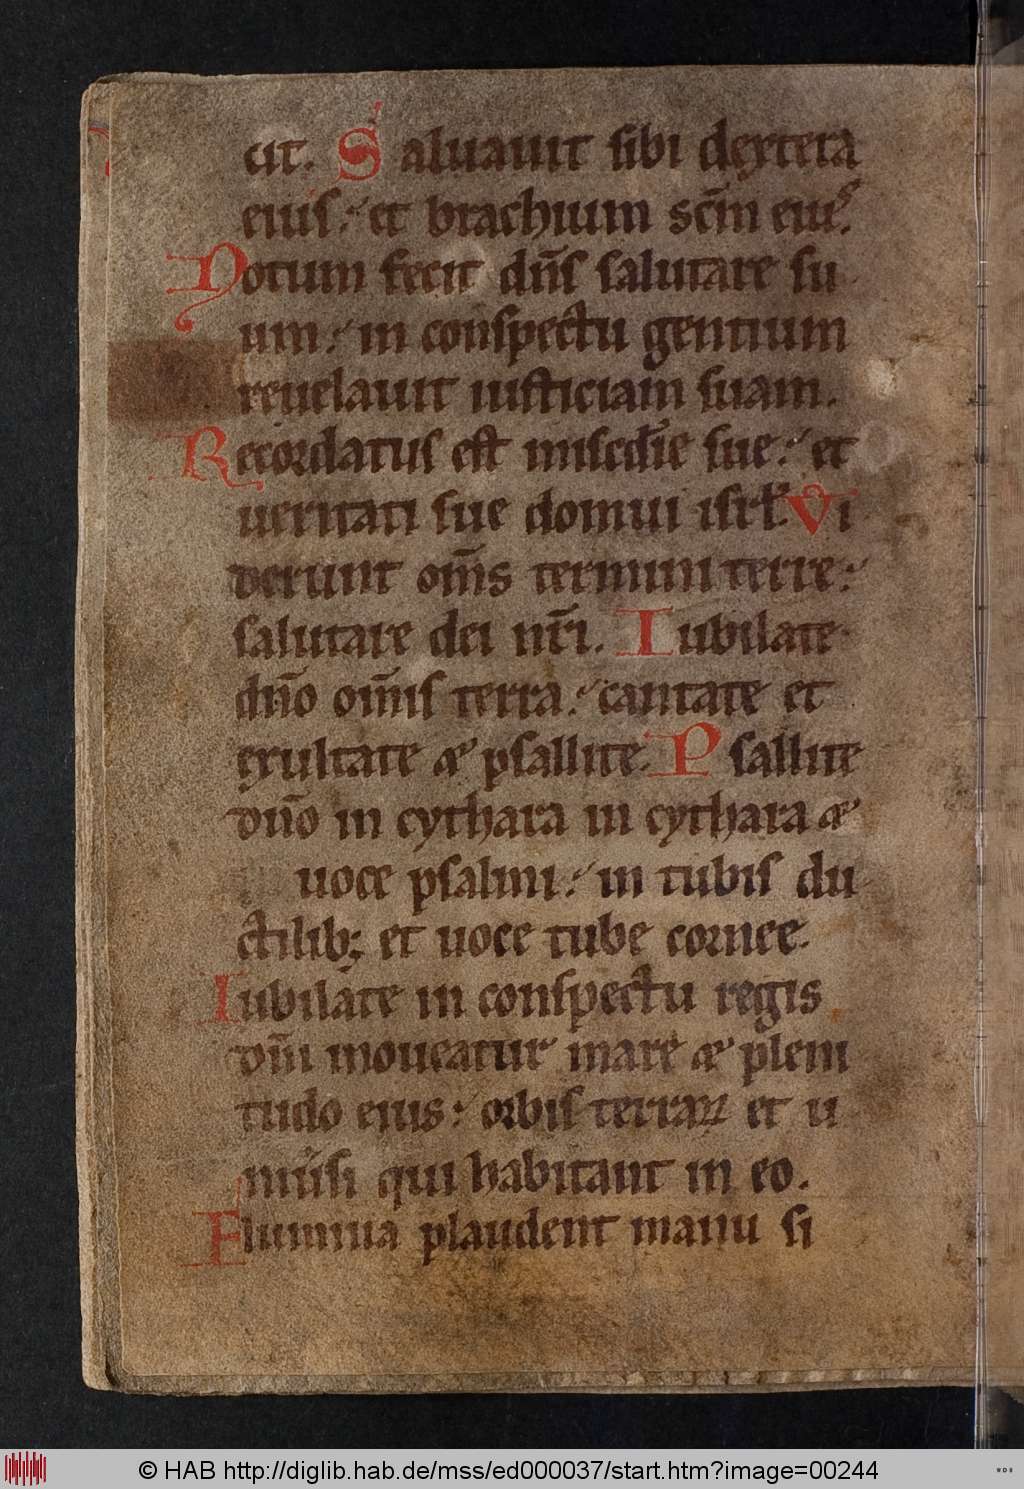 cit. Saluauit sibi dextera
eius: et brachium scm̄ eiuꝰ.
Notum fecit dn̄s salutare su
um: in conspectu gentium
reuelauit iusticiam suam.
Recordatus est miscd̄ie sue: et
ueritati sue domui isrl̄. Vi
derunt om̄s termini terre:
salutare dei nr̄i. Iubilate
dn̄o om̄is terra: cantate et
exultate & psallite. Psallite
dn̄o in cythara in cythara &
uoce psalmi: in tubis du
ctilib; et uoce tube cornee.
Iubilate in conspectu regis
dn̄i moueatur mare & pleni
tudo eius: orbis terraꝝ et u
niūsi qui habitant in eo.
Flumina plaudent manu si
© HAB http://diglib.hab.de/mss/ed000037/start.htm?image=00244